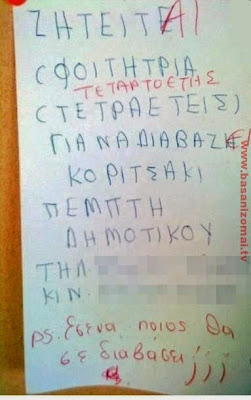 ΖΗΤΕΙΤΕΑΙ
(ΦΟΙΤΗΤΡΙΑ
ΤΕΤΑΡΤΟΕΤΗΣ
(ΤΕΤΡΑΕΤΕΙΣ)
ΓΙΑ ΝΑ ΔΙΑΒΑΖΕ
ΚΟΡΙΤΣΑΚΙ
ΠΕΜΠΤΗ
ΔΗΜΟΤΙΚΟΥ
ΤΗΛ
ΚΙΝ.
ps. Εσενα ποιος θα
σε διαβάσει ;;;
www.basanizomai.tv